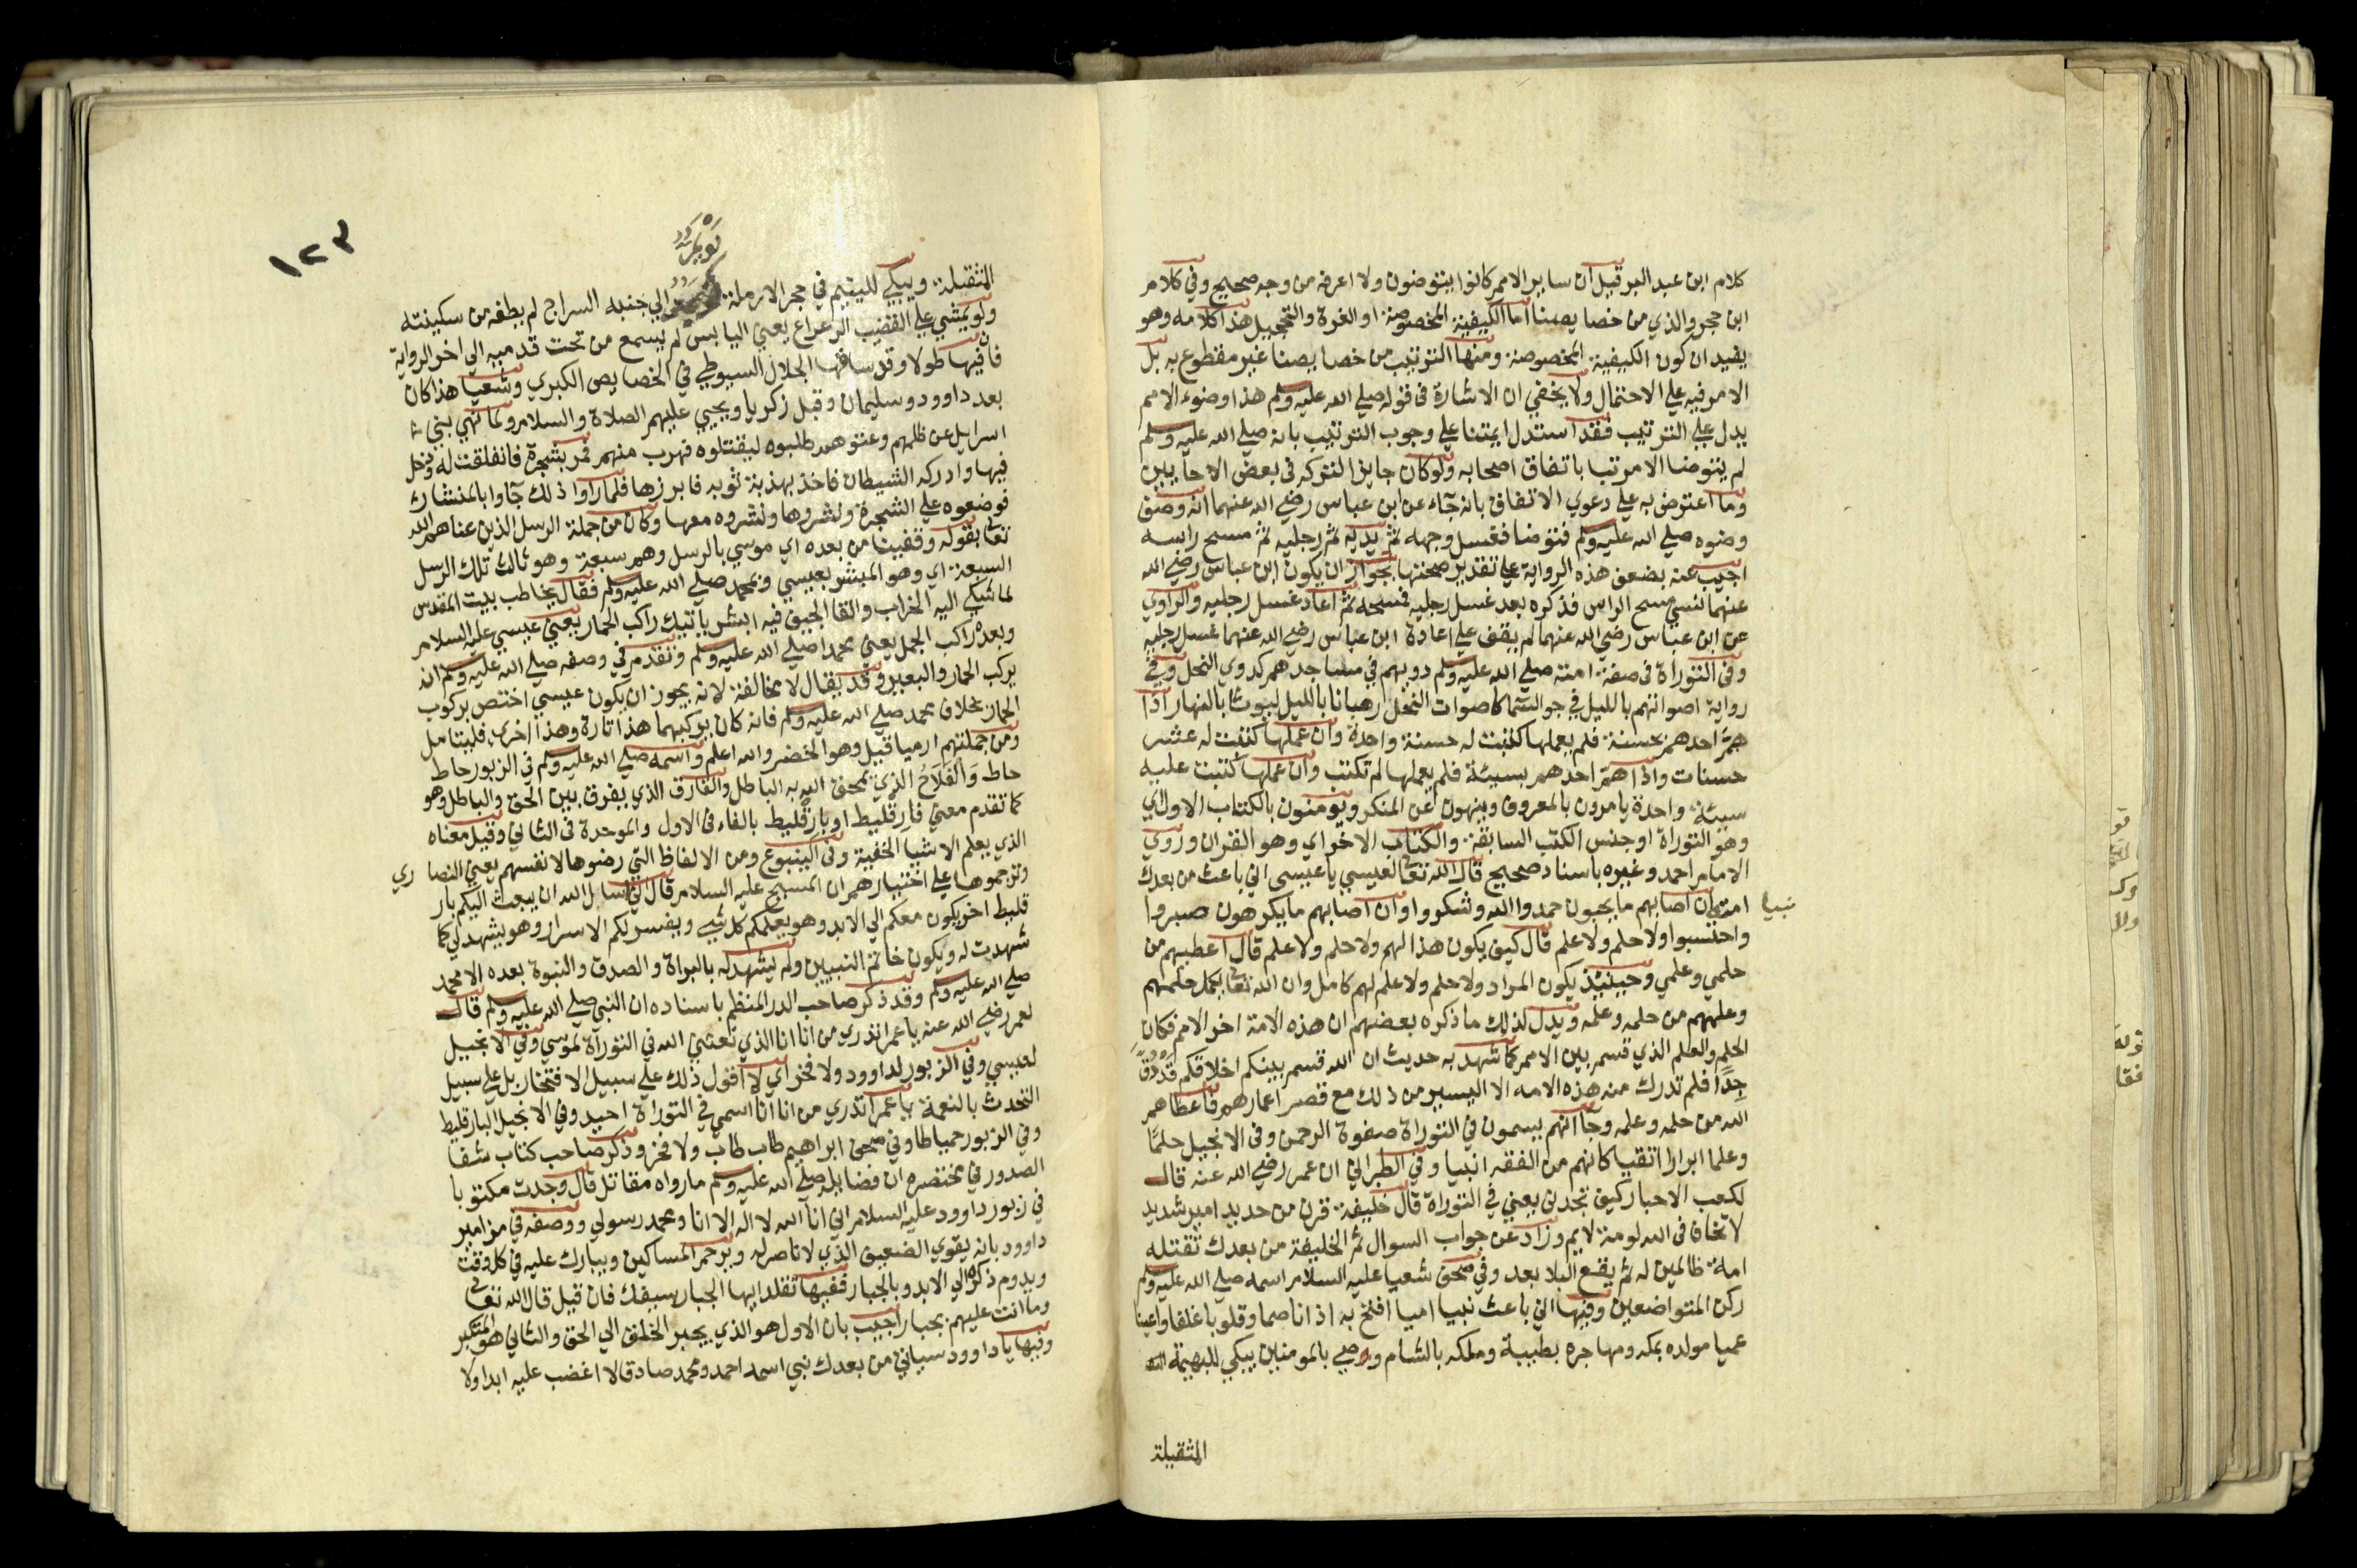 كلام ابن عبد البر قيل ان ساير الامم كانوا يتوضون ولا اعرفه من وجه صحيح وفي كلام
ابن حجر والذي من خصايصنا اما الكيفية المخصوصة او الغرة والتحجيل هذا كلامه وهو
يفيد ان كون الكيفية المخصوصة ومنها الترتيب من خصايصنا غير مقطوع به بل
الامر فيه علي الاحتمال ولا يخفي ان الاشارة في قوله صلي الله عليه وسلم هذا وضوء الامم
يدل علي الترتيب فقد استدل ايمتنا علي وجوب الترتيب بانه صلي الله عليه وسلم
لم يتوضا الا مرتبا باتفاق اصحابه ولو كان جايز التركه في بعض الاحايين
وما اعترض به علي دعوي الاتفاق بانه جآء عن ابن عباس رضي الله عنهما انه وصف
وضوه صلي الله عليه وسلم فتوضا فغسل وجهه ثم يديه ثم رجليه ثم مسح راسه
اجيب عنه بضعف هذه الرواية علي تقدير صحتها بجواز ان يكون ابن عباس رضي الله
عنهما نسي مسح الراس فذكره بعد غسل رجليه فمسحه ثم اعاد غسل رجليه والراوي
عن ابن عباس رضي الله عنهما لم يقف علي اعادة ابن عباس رضي الله عنهما غسل رجليه
وفي التوراة في صفة امته صلي الله عليه وسلم دويهم في مساجدهم كدوي النحل وفي
رواية اصواتهم بالليل في جو السما كاصوات النحل رهبانا بالليل ليوثا بالنهار اذا
همّ احدهم بحسنة فلم يعملها كتبت له حسنة واحدة وان عملها كتبت له عشر
حسنات واذا همّ احدهم بسيئة فلم يعملها لم تكتب وان عملها كتبت عليه
سيئة واحدة يامرون بالمعروف وينهون عن المنكر ويومنون بالكتاب الاول اي
وهو التوراة او جنس الكتب السابقة والكتاب الاخر اي وهو القران وروي
الامام احمد وغيره باسناد صحيح قال الله تعالي لعيسي يا عيسي اني باعث من بعدك
امة ان اصابهم ما يحبون حمدوا الله وشكروا وان اصابهم ما يكرهون صبروا
واحتسبوا ولا حلم ولا علم قال كيف يكون هذا لهم ولا حلم ولا علم قال اعطيهم من
حلمي وعلمي وحينيذ يكون المراد ولا حلم ولا علم لهم كامل وان الله تعالي يكمل حلمهم
وعلمهم من حلمه وعلمه ويدل لذلك ما ذكره بعضهم ان هذه الامة اخر الامم فكان
الحلم والعلم الذي قسم بين الامم كما شهد به حديث ان الله قسم بينكم اخلاقكم
جدا فلم تدرك منه هذه الامه الا اليسير من ذلك مع قصر اعمارهم فاعطاهم
الله من حلمه وعلمه وجآ انهم يسمون في التوراة صفوة الرحمن وفي الانجيل حلمًا
وعلما ابرارا اتقيا كانهم من الفقه انبيا وفي الطبراني ان عمر رضي الله عنه قال
لكعب الاحبار كيف تجدني يعني في التوراة قال خليفة قرن من حديد امير شديد
لا تخاف في الله لومة لايم وزاد عن جواب السوال ثم الخليفة من بعدك تقتله
امة ظالمين له ثم يقع البلا بعد وفي صحف شعيا عليه السلام اسمه صلي الله عليه وسلم
ركن المتواضعين وفيها اني باعث نبيا اميا افتح به اذانا صما وقلوبا غلفا واعينا
عميا مولده بمكه ومهاجره بطيبة وملكه بالشام رحيم بالمومنين يبكي للبهيمة
المثقيلة
١٢٣
المثقيلة ويبكي لليتيم في حجر الارملة الي جنبه السراج لم يطفه من سكينته
ولو يمشي علي القضيب الرعراع يعني اليابس لم يسمع من تحت قدميه الي اخر الرواية
فان فيها طولا وقد ساقها الجلال السيوطي في الخصايص الكبري وشعيا هذا كان
بعد داوود وسليمان وقبل زكريا ويحيي عليهم الصلاة والسلام ولما نهي بني
اسرايل عن ظلمهم وعتوهم طلبوه ليقتلوه فهرب منهم فمر بشجرة فانفلقت له ودخل
فيها وادركه الشيطان فاخذ بهذبة ثوبه فابرزها فلما راوا ذلك جآوا بالمنشار
فوضعوه علي الشجرة ونشروها ونشروه معها وكان من جملة الرسل الذين عناهم الله
تعالي بقوله وقفينا من بعده اي موسي بالرسل وهم سبعة وهو ثالث تلك الرسل
السبعة اي وهو المبشر بعيسي وبمحمد صلي الله عليه وسلم فقال يخاطب بيت المقدس
لما شكي اليه الخراب والقا الجيف فيه ابشر ياتيك راكب الحمار يعني عيسي عليه السلام
وبعده راكب الجمل يعني محمدا صلي الله عليه وسلم وتقدم في وصفه صلي الله عليه وسلم انه
يركب الحمار والبعير وقد يقال لا مخالفة لانه يجوز ان يكون عيسي اختص بركوب
الحمار بخلاف محمد صلي الله عليه وسلم فانه كان يركبهما هذا تارة وهذا اخري فليتامل
ومن جملتهم ارميا قيل وهو الخضر والله اعلم واسمه صلي الله عليه وسلم في الزبور حاط
حاط وَالفَلَاحُ الذي يمحق الله به الباطل والفارق الذي يفرق بين الحق والباطل وهو
كما تقدم معني فارقليط او بارقليط بالفاء في الاول والموحدة في الثاني وقيل معناه
الذي يعلم الاشيا الخفية وفي الينبوع ومن الالفاظ التي رضوها لانفسهم يعني النصاري
وترجموها علي اختيارهم ان المسيح عليه السلام قال اني اسال الله ان يبعث اليكم بار
قليط اخر يكون معكم الي الابد وهو يعلمكم كل شي ويفسر لكم الاسرار وهو يشهد لي كما
شهدت له ويكون خاتم النبيين ولم يشهد له بالبراة والصدق والنبوة بعده الا محمد
صلي الله عليه وسلم وقد ذكر صاحب الدر المنظم باسناده ان النبي صلي الله عليه وسلم قال
لعمر رضي الله عنه يا عمر اتدري من انا انا الذي بعثني الله في التوراة لموسي وفي الانجيل
لعيسي وفي الزبور لداوود ولا فخر اي لا اقول ذلك علي سبيل الافتخار بل علي سبيل
التحدث بالنعمة يا عمر اتدري من انا انا اسمي في التوراة احيد وفي الانجيل البارقليط
وفي الزبور حمياطا وفي صحف ابراهيم طاب طاب ولا فخر وذكر صاحب كتاب شفا
الصدور في مختصره ان فضايله صلي الله عليه وسلم ما رواه مقاتل قال وجدت مكتوبا
في زبور داوود عليه السلام اني انا الله لا اله الا انا ومحمد رسولي ووصفه في مزامير
داوود بانه يقوي الضعيف الذي لا ناصر له ويرحم المساكين ويبارك عليه في كل وقت
ويدوم ذكره الي الابد وبالجبار ففيها تقلد ايها الجبار سيفك فان قيل قال الله تعالي
وما انت عليهم بجبار اجيب بان الاول هو الذي يجبر الخلق الي الحق والثاني هو المتكبر
وفيها يا داوود سياتي من بعدك نبي اسمه احمد ومحمد صادقا لا اغضب عليه ابدا ولا